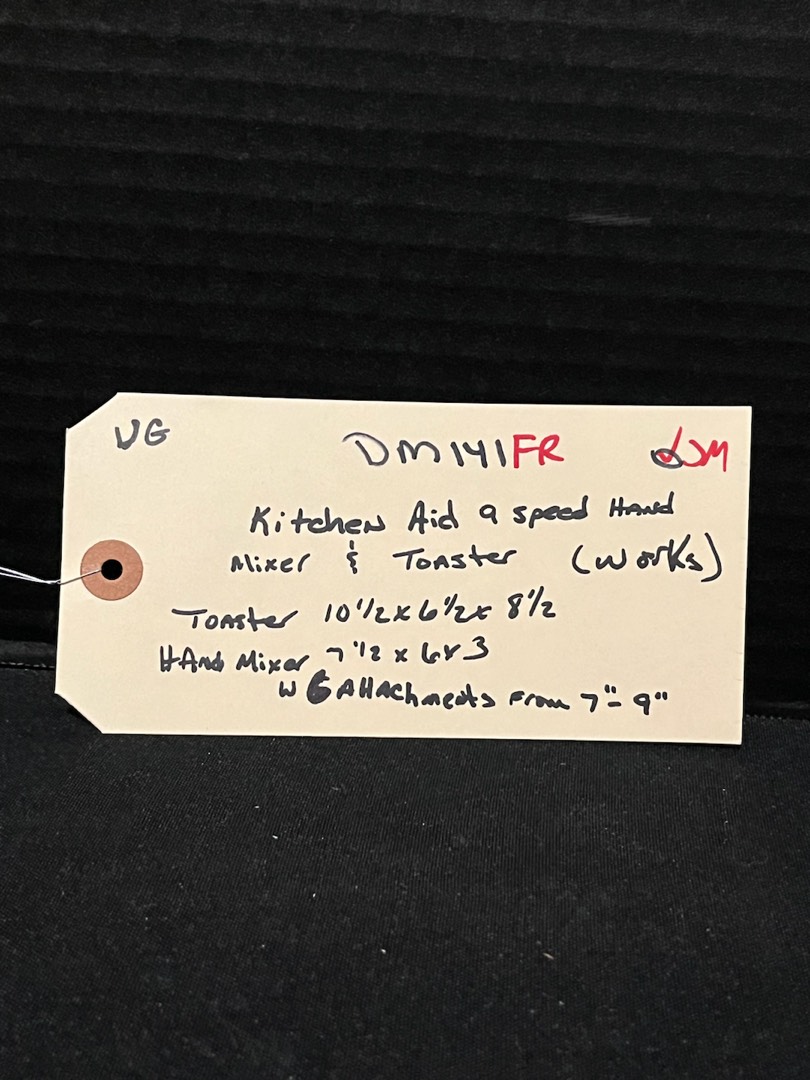 VG DM141FR JM
Kitchen Aid 9 speed Hand
Mixer & Toaster (works)
Toaster 10 1/2 x 6 1/2 x 8 1/2
Hand Mixer 7 1/2 x 6 x 3
w 6 Attachments From 7"- 9"